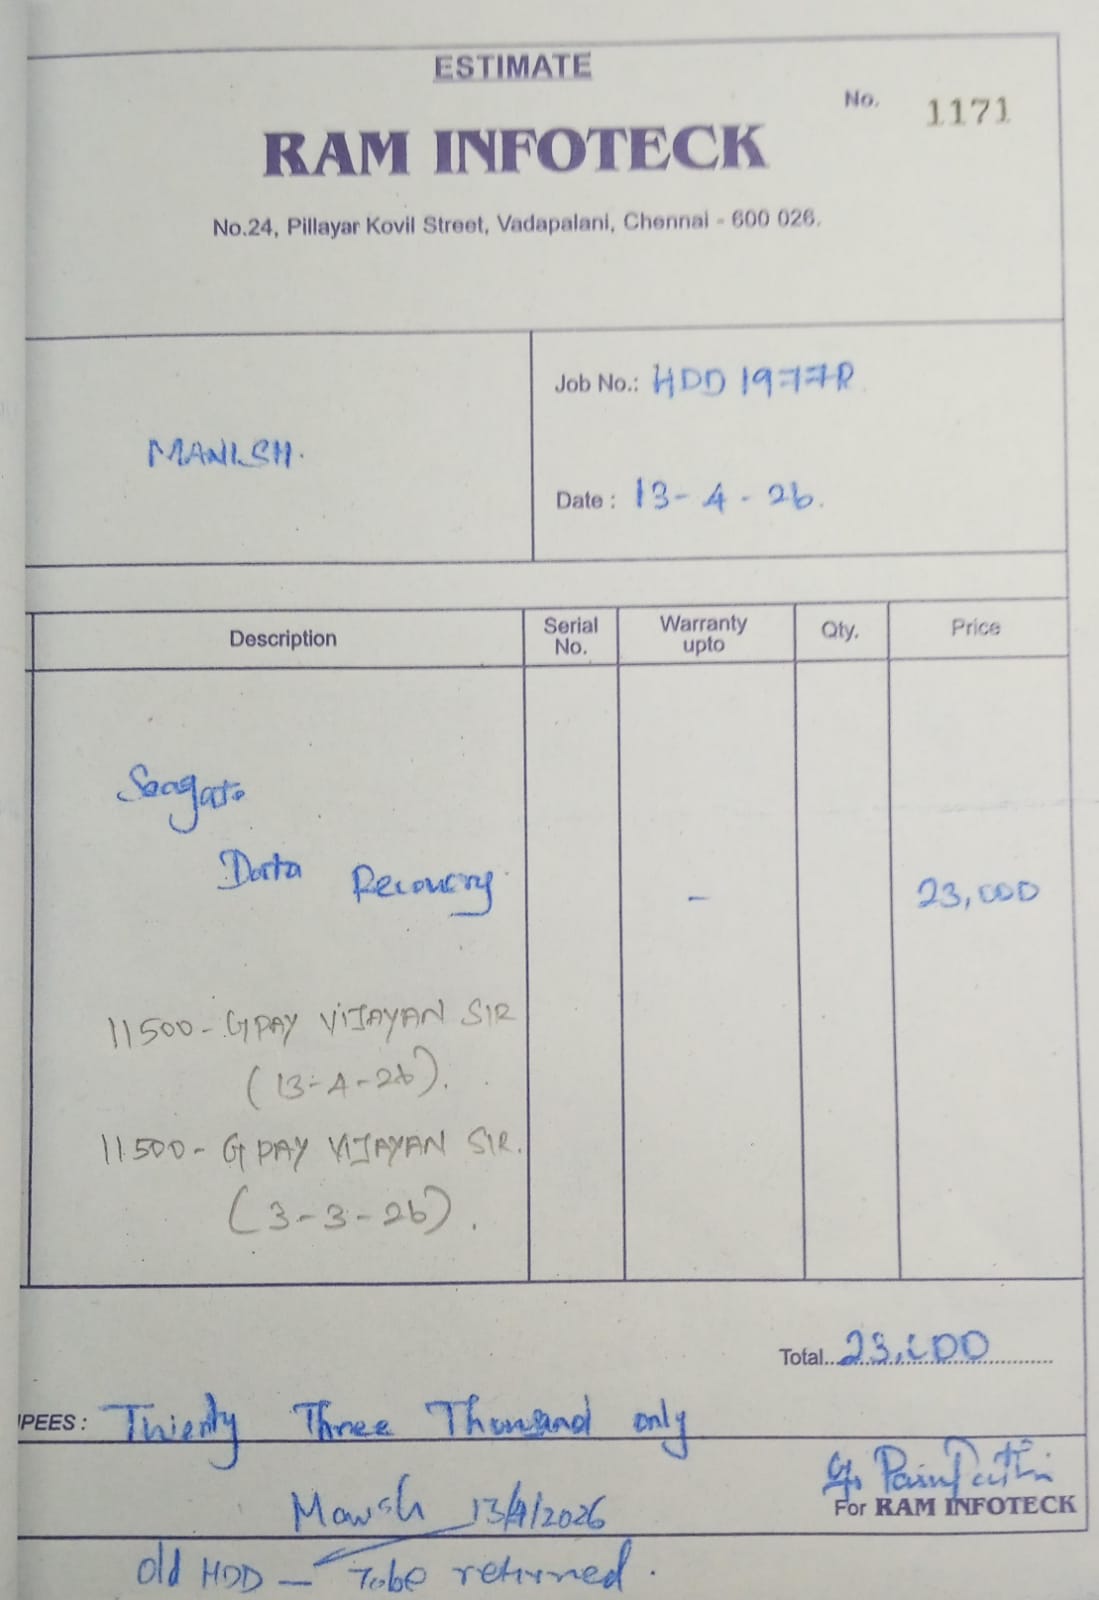 ESTIMATE
No. 1171
RAM INFOTECK
No.24, Pillayar Kovil Street, Vadapalani, Chennai - 600 026.
MANISH.
Job No.: HDD 1977R
Date : 13-4-26.
Description Serial No. Warranty upto Qty. Price
Seagate
Data Recovery - 23,000
11500 - GPAY VIJAYAN SIR
(13-4-26).
11500 - GPAY VIJAYAN SIR.
(3-3-26).
Total 23,000
PEES : Twenty Three Thousand only
Manish 13/4/2026
For RAM INFOTECK
old HDD — To be returned.